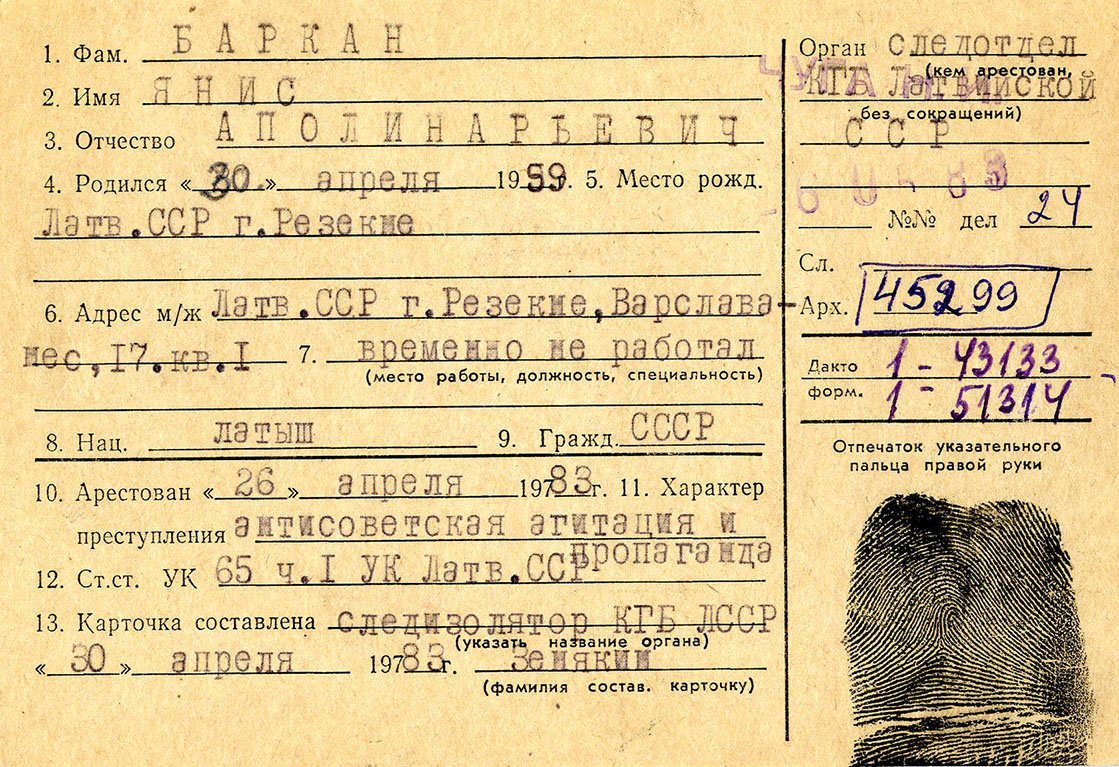 1. Фам. БАРКАН
2. Имя ЯНИС
3. Отчество АПОЛИНАРЬЕВИЧ
4. Родился «30.» апреля 1959г. 5. Место рожд.
Латв.ССР г.Резекне
6. Адрес м/ж Латв.ССР г.Резекне,Варслава-
нес,17.кв.1 7. временно не работал
(место работы, должность, специальность)
8. Нац. латыш 9. Гражд. СССР
10. Арестован «26» апреля 1983г. 11. Характер
преступления антисоветская агитация и
пропаганда
12. Ст.ст. УК 65 ч.I УК Латв.ССР
13. Карточка составлена следизолятор КГБ ЛССР
(указать название органа)
«30» апреля 1983г. Зенякин
(фамилия состав. карточку)
Орган следотдел
(кем арестован,
КГБ Латвийской
без сокращений)
ССР
№№ дел 24
Сл.
Арх. 45299
Дакто 1 - 43133
форм. 1 - 51314
Отпечаток указательного
пальца правой руки